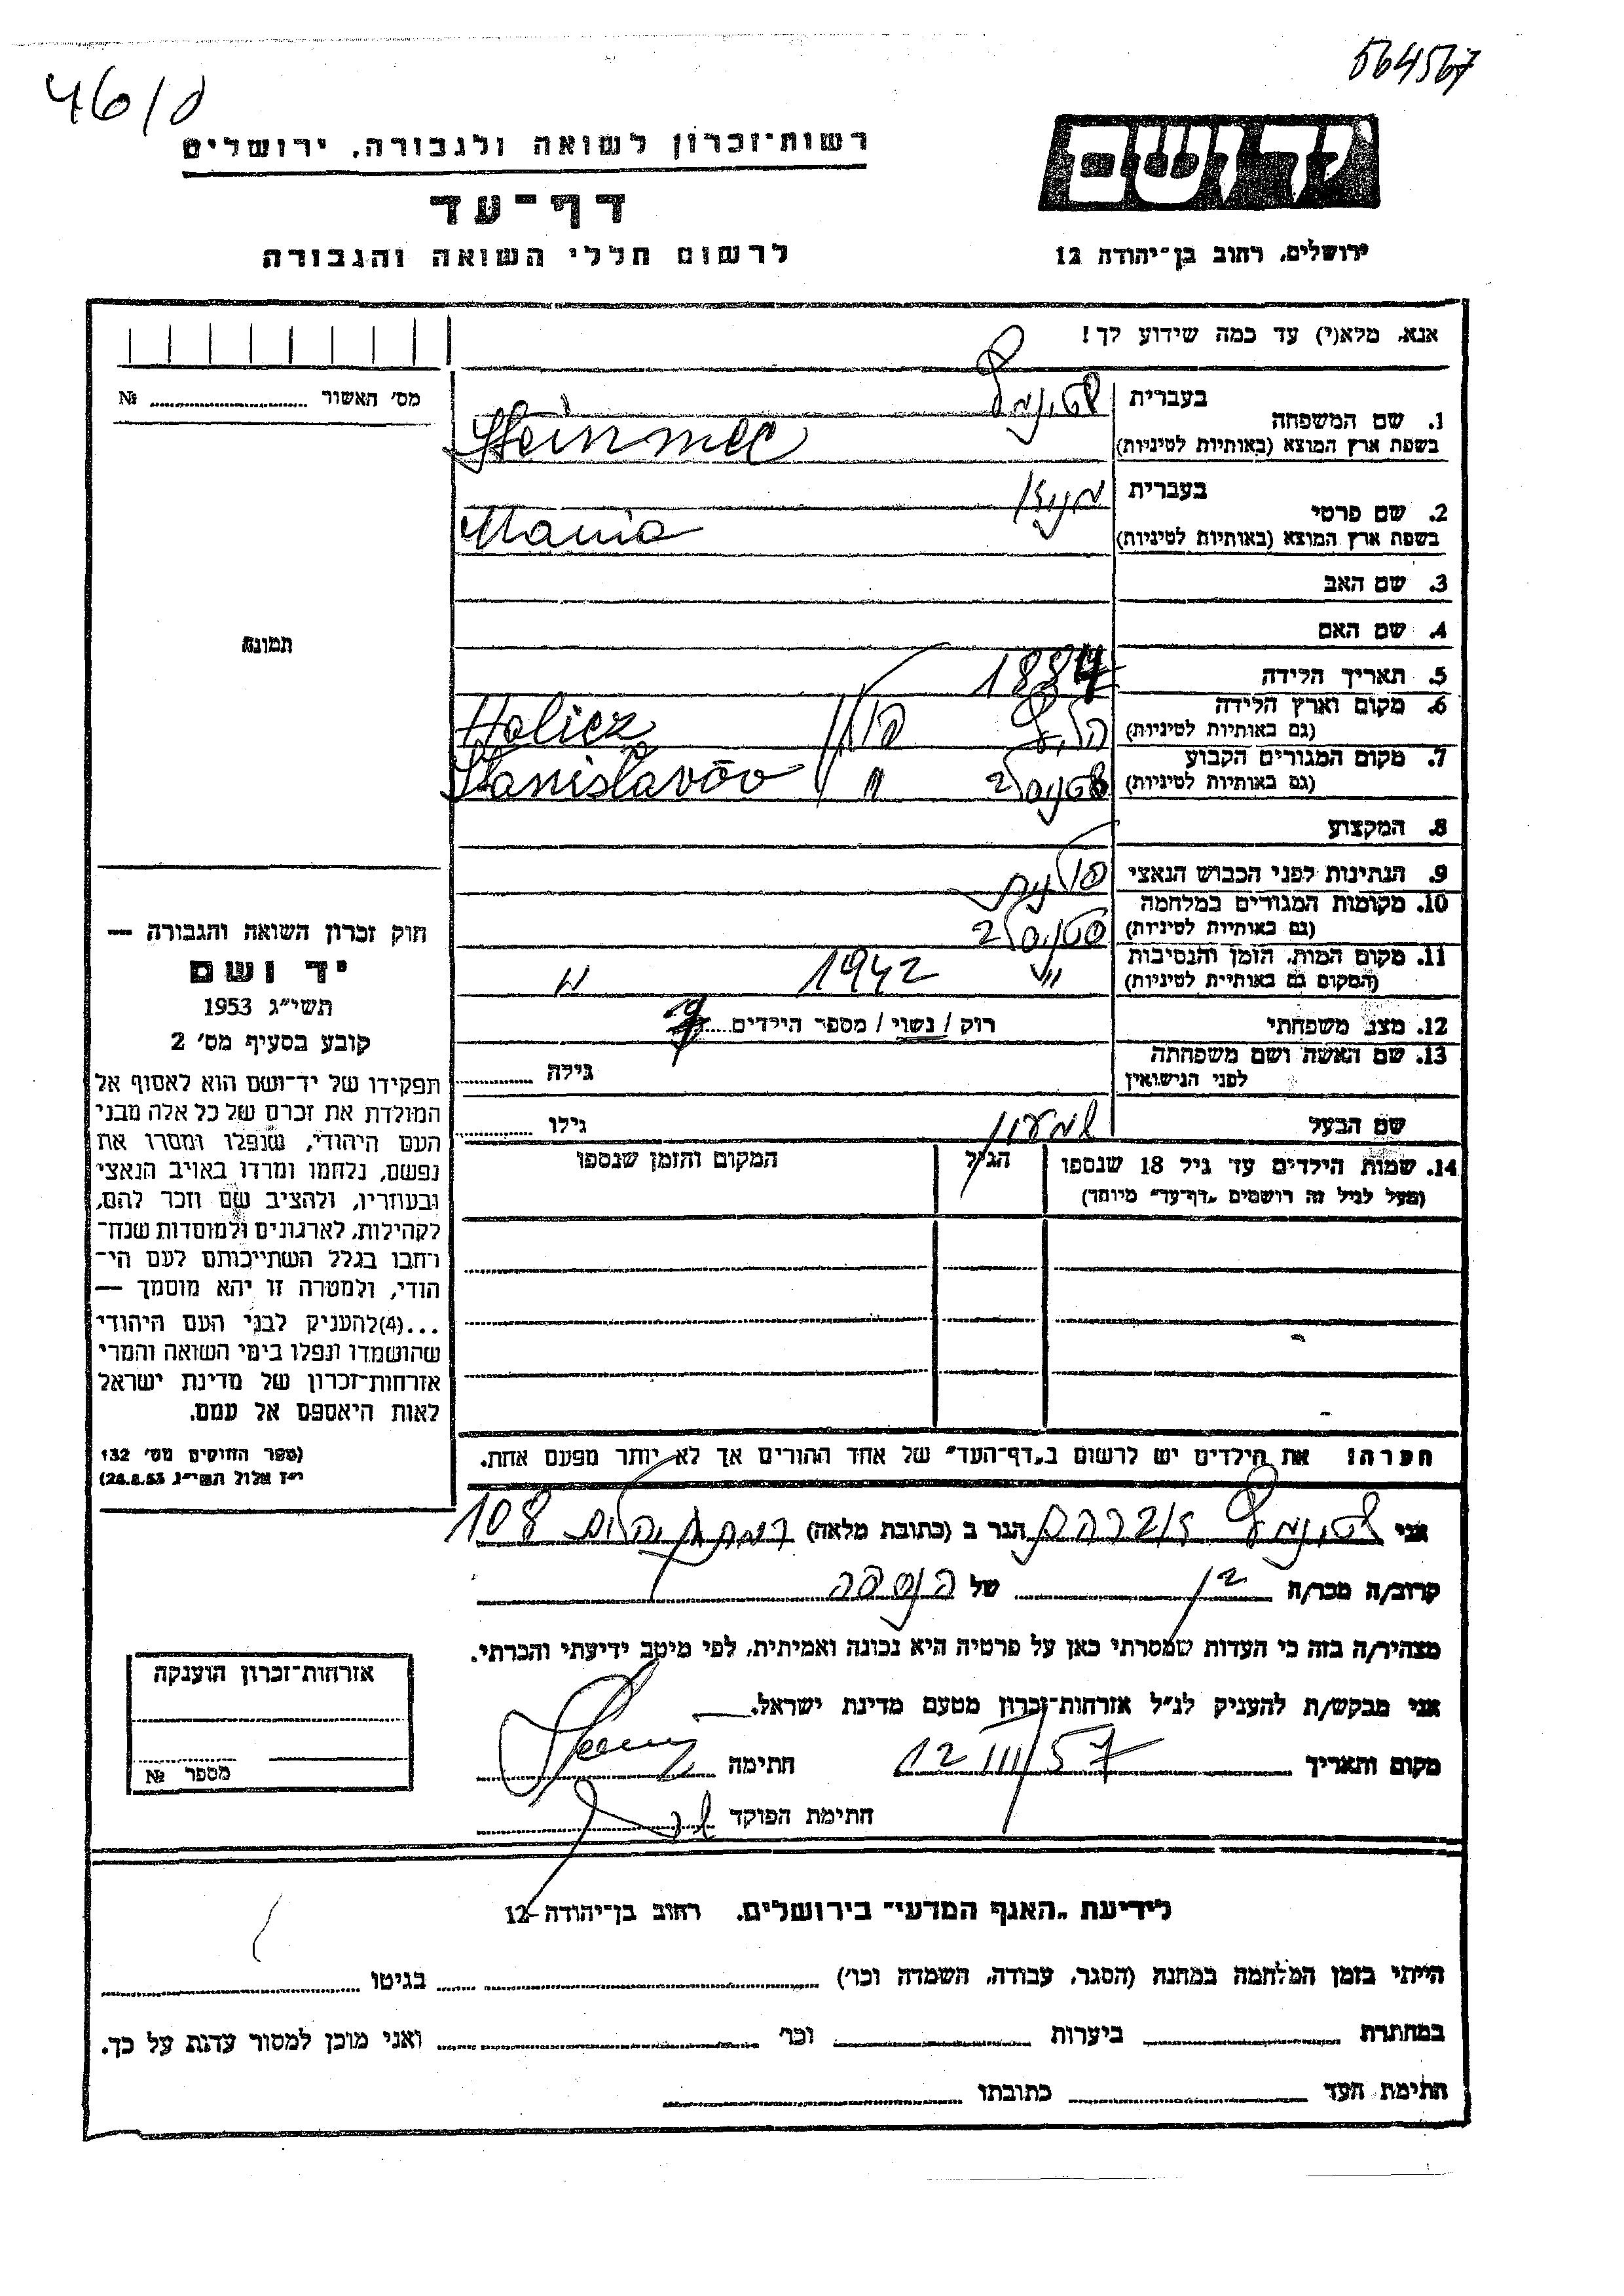 564567
46/ס
יד ושם
רשות־זכרון לשואה ולגבורה, ירושלים
דף־עד
לרשום חללי השואה והגבורה
ירושלים, רחוב בן־יהודה 12
אנא, מלא(י) עד כמה שידוע לך!
מס' האשור № 
1. שם המשפחה בעברית שטינמץ
בשפת ארץ המוצא (באותיות לטיניות) Steinmec
2. שם פרטי בעברית מניה
בשפת ארץ המוצא (באותיות לטיניות) Mania
3. שם האב
4. שם האם
תמונה
5. תאריך הלידה 1884
6. מקום וארץ הלידה
(גם באותיות לטיניות) הליץ פולין Halicz
7. מקום המגורים הקבוע
(גם באותיות לטיניות) סטניסלב " Stanislavów
8. המקצוע
9. הנתינות לפני הכבוש הנאצי פולנית
10. מקומות המגורים במלחמה
(גם באותיות לטיניות) סטניסלב
11. מקום המות, הזמן והנסיבות
(המקום גם באותיית לטיניות) " 1942
12. מצב משפחתי רוק / נשוי / מספר הילדים
13. שם האשה ושם משפחתה
לפני הנישואין גילה
שם הבעל שמעון גילו
14. שמות הילדים עד גיל 18 שנספו הגיל המקום והזמן שנספו
(מעל לגיל זה רושמים „דף־עד" מיוחד)
חוק זכרון השואה והגבורה —
יד ושם
תשי"ג 1953
קובע בסעיף מס' 2
תפקידו של יד־ושם הוא לאסוף אל
המולדת את זכרם של כל אלה מבני
העם היהודי, שנפלו ומסרו את
נפשם, נלחמו ומרדו באויב הנאצי
ובעוזריו, ולהציב שם וזכר להם,
לקהילות, לארגונים ולמוסדות שנח־
רחבו בגלל השתייכותם לעם הי־
הודי, ולמטרה זו יהא מוסמך —
...(4)להעניק לבני העם היהודי
שהושמדו ונפלו בימי השואה והמרי
אזרחות־זכרון של מדינת ישראל
לאות היאספם אל עמם.
(ספר החוקים מס' 132
י"ז אלול תשי"ג 28.8.53)
הערה! את הילדים יש לרשום ב„דף־העד" של אחד ההורים אך לא יותר מפעם אחת.
אני שטינמץ אברהם הגר ב (כתובת מלאה) רמת גן 108
קרוב/ה מכר/ה בן של הנספה
מצהיר/ה בזה כי העדות שמסרתי כאן על פרטיה היא נכונה ואמיתית, לפי מיטב ידיעתי והכרתי.
אני מבקש/ת להעניק לנ"ל אזרחות־זכרון מטעם מדינת ישראל.
מקום ותאריך 12/III/57 חתימה
חתימת הפוקד
אזרחות־זכרון הוענקה
מספר №
לידיעת „האגף המדעי" בירושלים, רחוב בן־יהודה 12
הייתי בזמן המלחמה במחנה (הסגר, עבודה, השמדה וכו') בגיטו
במחתרת ביערות וכו' ואני מוכן למסור עדות על כך.
חתימת העד כתובתו